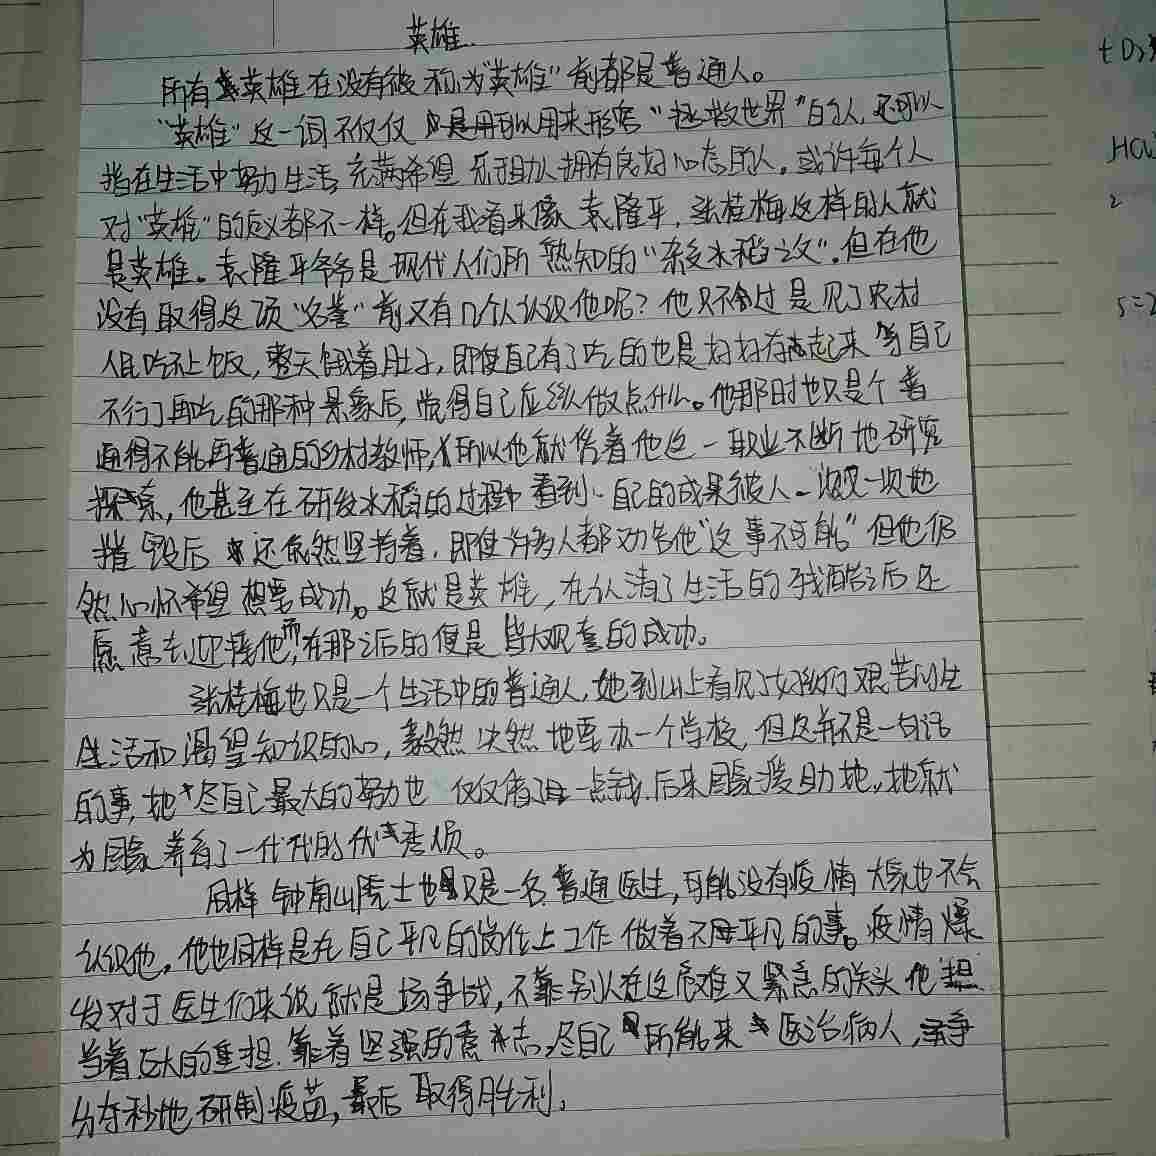 英雄
所有英雄在没有被称为"英雄"前都是普通人。
"英雄"这一词不仅仅是用以用来形容"拯救世界"的人,还可以
指在生活中努力生活,充满希望 乐于助人拥有良好心态的人。或许每个人
对"英雄"的定义都不一样。但在我看来像袁隆平,张桂梅这样的人就
是英雄。袁隆平爷爷是现代人们所熟知的"杂交水稻之父"。但在他
没有取得这项"名誉"前又有几个人认识他呢?他只不过是见了农村
人民吃不上饭,整天饿着肚子,即使自己有了吃的也是好好存起来等自己
不行了再吃的那种景象后,觉得自己应该做点什么。他那时也只是个普
通得不能再普通的乡村教师,所以他就借着他这一职业不断地研究
探索,他甚至在研发水稻的过程中看到自己的成果被人一块一块地
摧毁后还依然坚持着,即使许多人都劝告他"这事不可能"但他仍
然心怀希望想要成功。这就是英雄,在认清了生活的残酷之后还
愿意去迎接他,而在那之后的便是皆大欢喜的成功。
张桂梅也只是一个生活中的普通人,她到山上看见了女孩们艰苦的生
生活和渴望知识的心,毅然决然地要办一个学校,但这并不是一句话
的事,她尽自己最大的努力也仅仅凑了一点钱,后来国家援助她,她就
为国家养育了一代代的优秀
同样钟南山院士也只是一名普通医生,可能没有疫情大家也不会
认识他,他也同样是在自己平凡的岗位上工作做着不平凡的事。疫情爆
发对于医生们来说就是场争战,在这危难又紧急的关头他担
当着巨大的重担,靠着坚强的意志,尽自己所能来医治病人,争
分夺秒地研制疫苗,最后取得胜利。
HCl
2